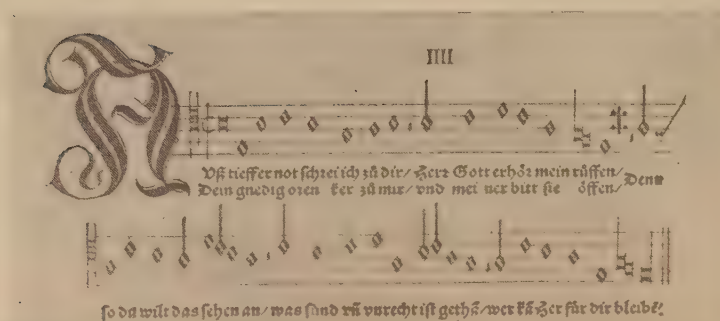 IIII
AUß tieffer not schrei ich zů dir/ Herr Gott erhör mein rüffen/
Dein gnedig oren ker zů mir/ vnd mei ner bitt sie öffen/ Denn
so du wilt das sehen an/ was sünd vñ vnrecht ist gethã/ wer kã Her für dir bleibẽ?